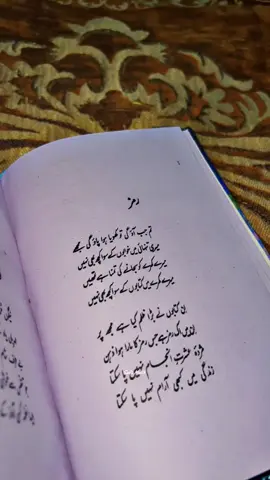 رمز
تم جب آؤ گی تو کھویا ہوا پاؤ گی مجھے
میری تنہائی میں خوابوں کے سوا کچھ بھی نہیں
میرے کمرے کو سجانے کی تمنا ہے تمہیں
میرے کمرے میں کتابوں کے سوا کچھ بھی نہیں
ان کتابوں نے بڑا ظلم کیا ہے مجھ پر
ان میں اک رمز ہے جس رمز کا مارا ہوا ذہن
مژدۂ عشرت انجام نہیں پا سکتا
زندگی میں کبھی آرام نہیں پا سکتا